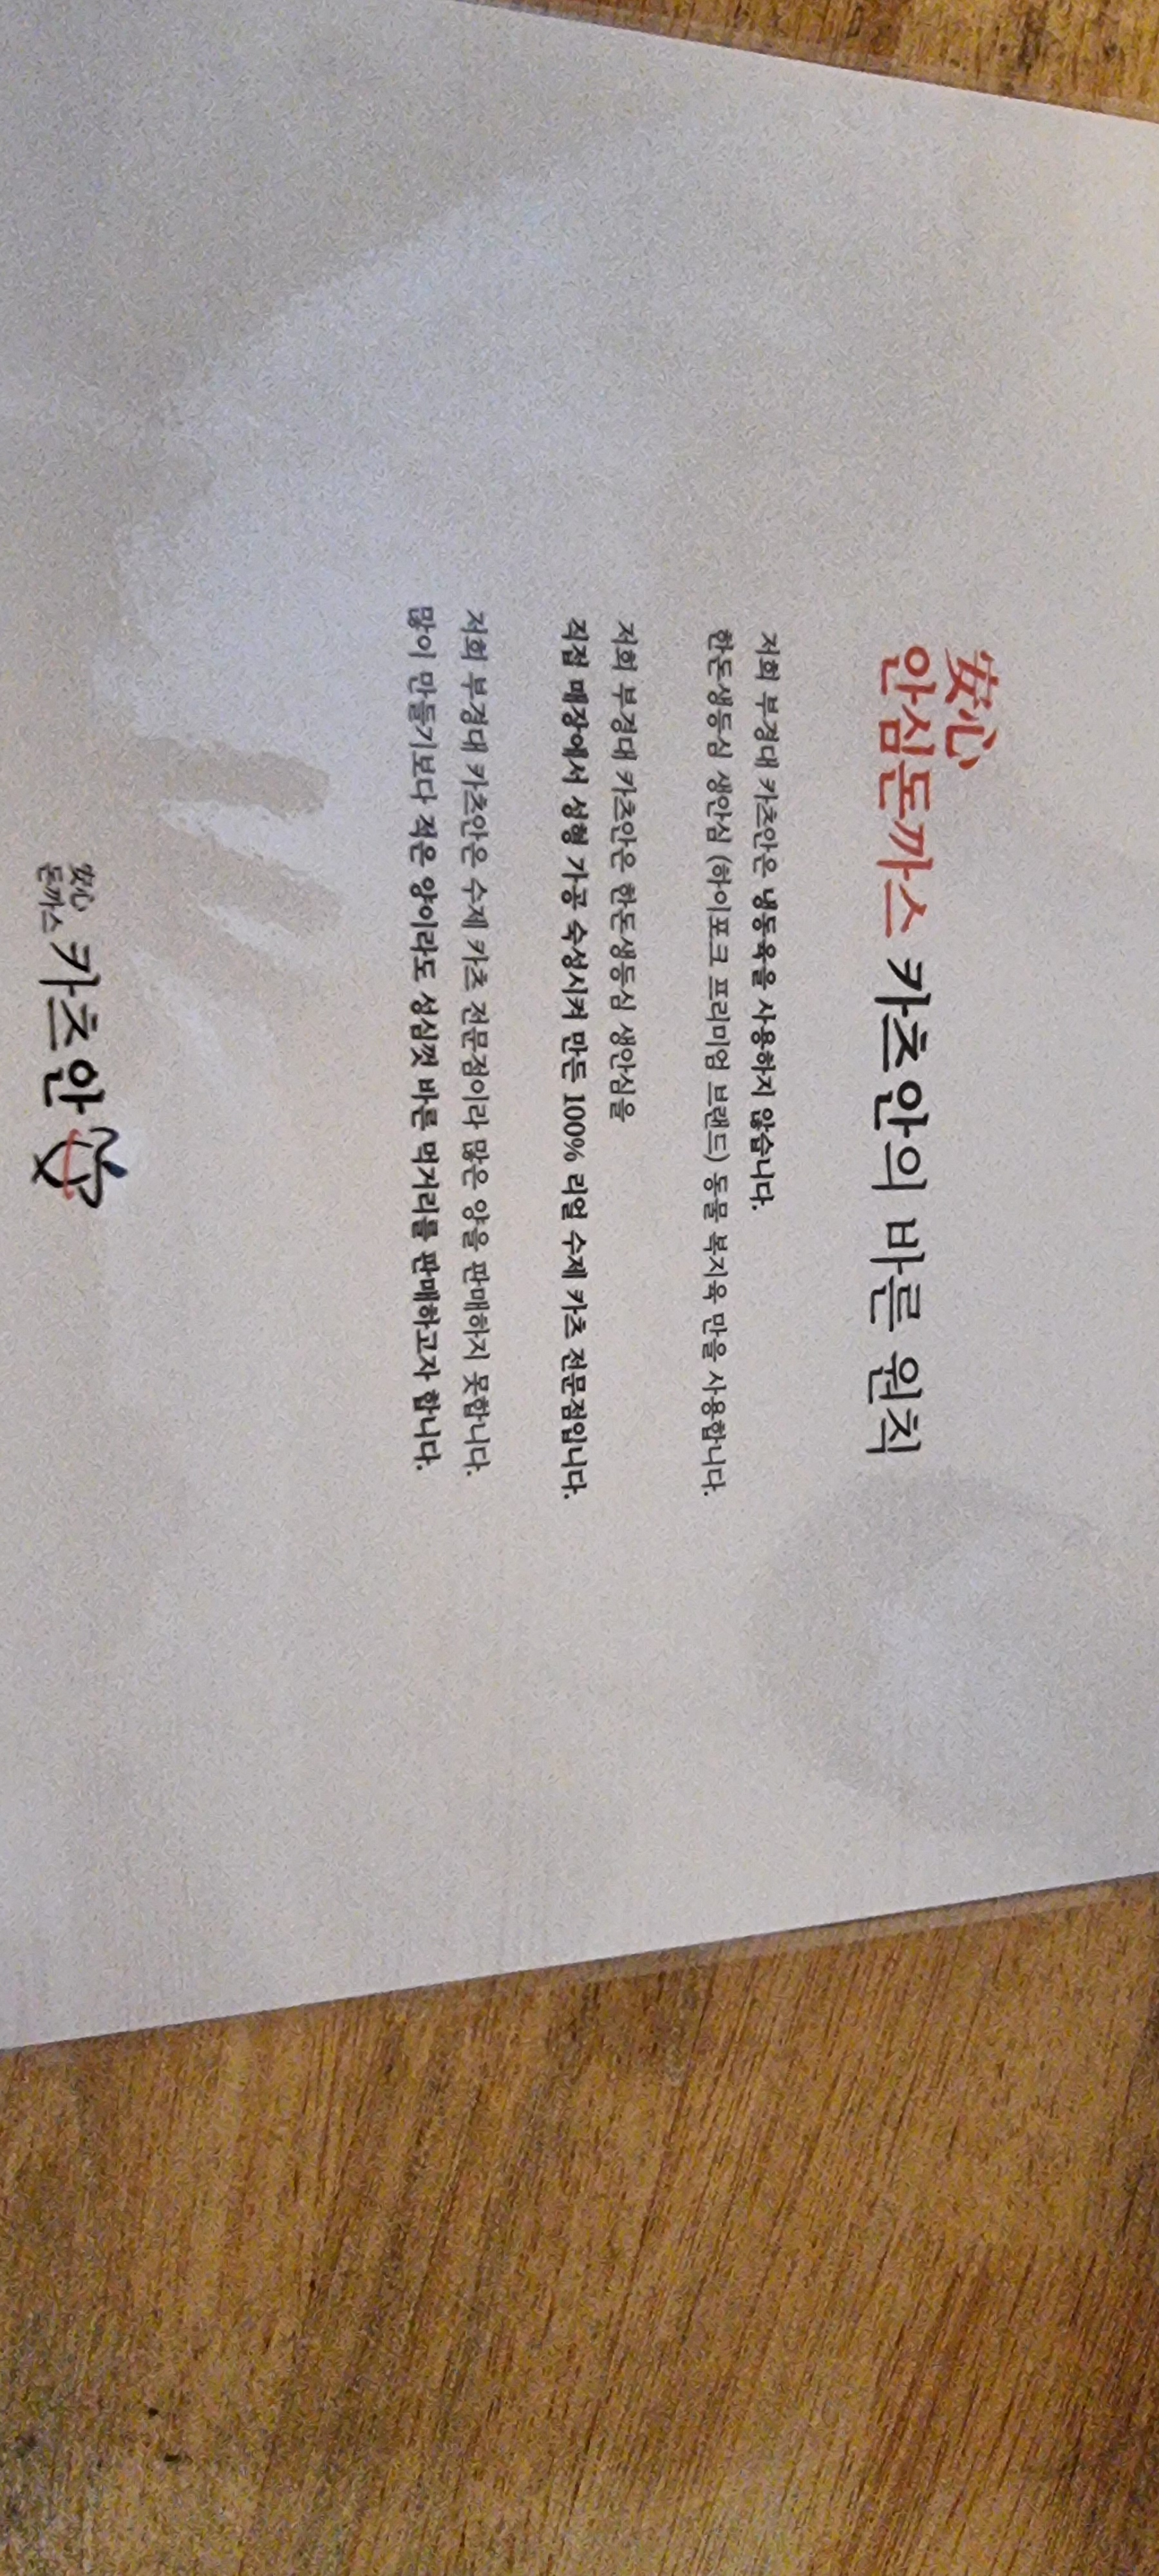 安心
안심돈까스 카츠안의 바른 원칙
저희 부경대 카츠안은 냉동육을 사용하지 않습니다.
한돈생등심 생안심 (하이포크 프리미엄 브랜드) 동물 복지육 만을 사용합니다.
저희 부경대 카츠안은 한돈생등심 생안심을
직접 매장에서 성형 가공 숙성시켜 만든 100% 리얼 수제 카츠 전문점입니다.
저희 부경대 카츠안은 수제 카츠 전문점이라 많은 양을 판매하지 못합니다.
많이 만들기보다 적은 양이라도 성심껏 바른 먹거리를 판매하고자 합니다.
安心
돈까스 카츠안